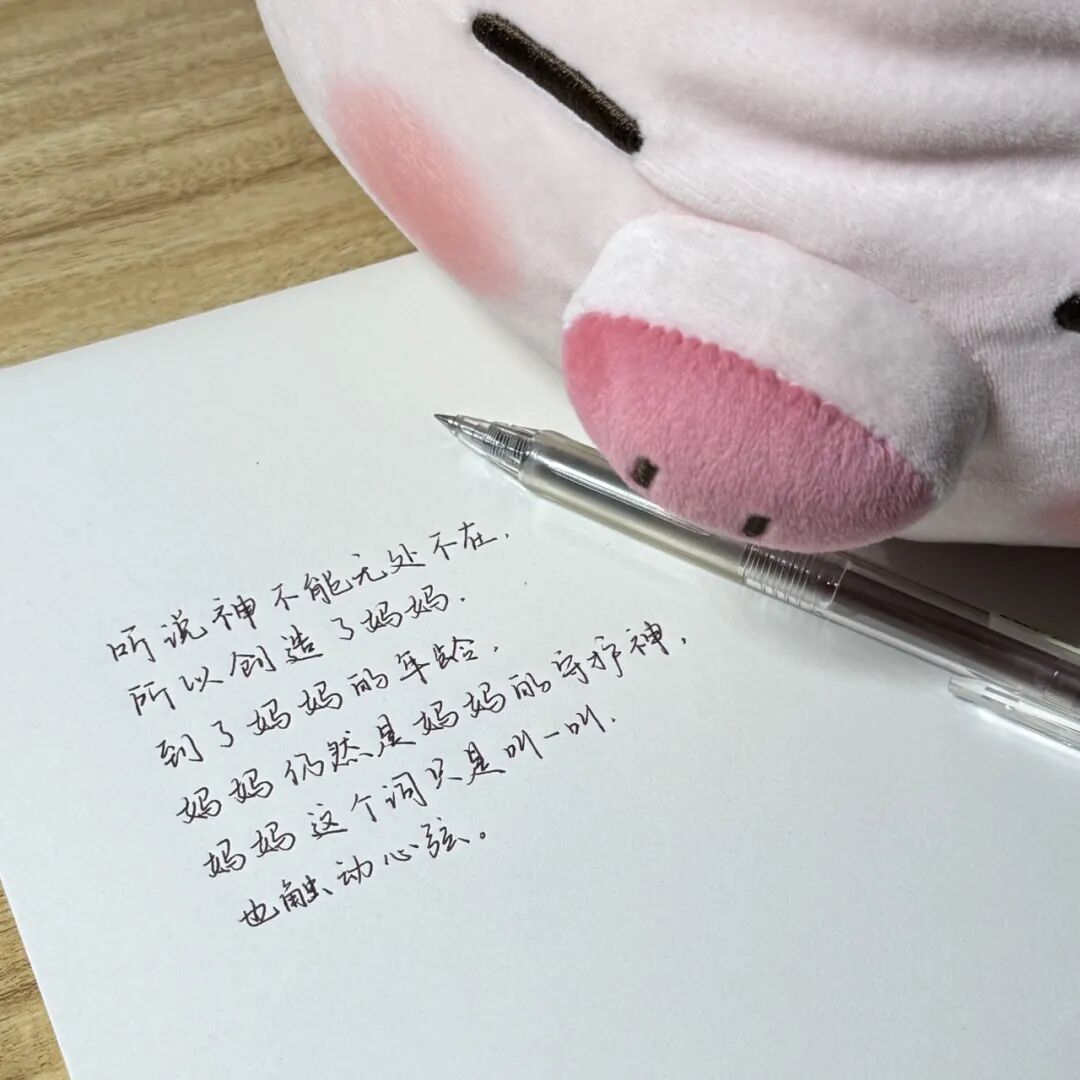 听说神不能无处不在，
所以创造了妈妈．
到了妈妈的年龄，
妈妈仍然是妈妈的守护神，
妈妈这个词只是叫一叫．
也触动心弦。